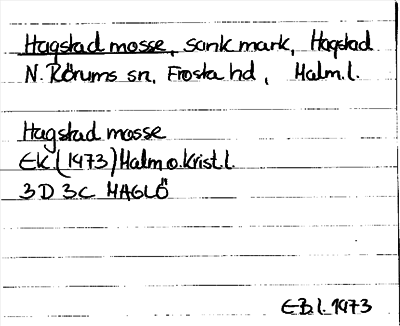 Hagstad mosse, sank mark, Hagstad
N. Rörums sn, Frosta hd, Malm.l.
Hagstad mosse
EK (1973) Malm o. Krist.l.
3D 3C HAGLÖ
E.B.l. 1973